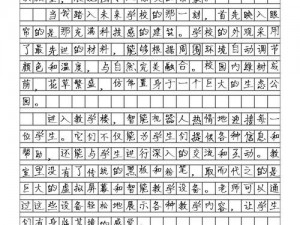 当我踏入未来学校的那一刻，首先映入眼
帘的是那充满科技感的建筑。学校的外观采用
了最先进的材料，能够根据周围环境自动调节
颜色和温度，与自然完美融合。校园内绿树成
荫，花草繁盛，仿佛置身于一个巨大的生态公
园。
进入教学楼，智能机器人热情地迎接每一
位学生。它们不仅能为学生们提供各种信息和
帮助，还能与学生进行深入的交流和互动。教
室里没有了传统的黑板和粉笔，取而代之的是
巨大的虚拟屏幕和智能教学设备。老师可以通
过这些设备轻松地展示各种教学内容，让学生
们有身临其境的感觉